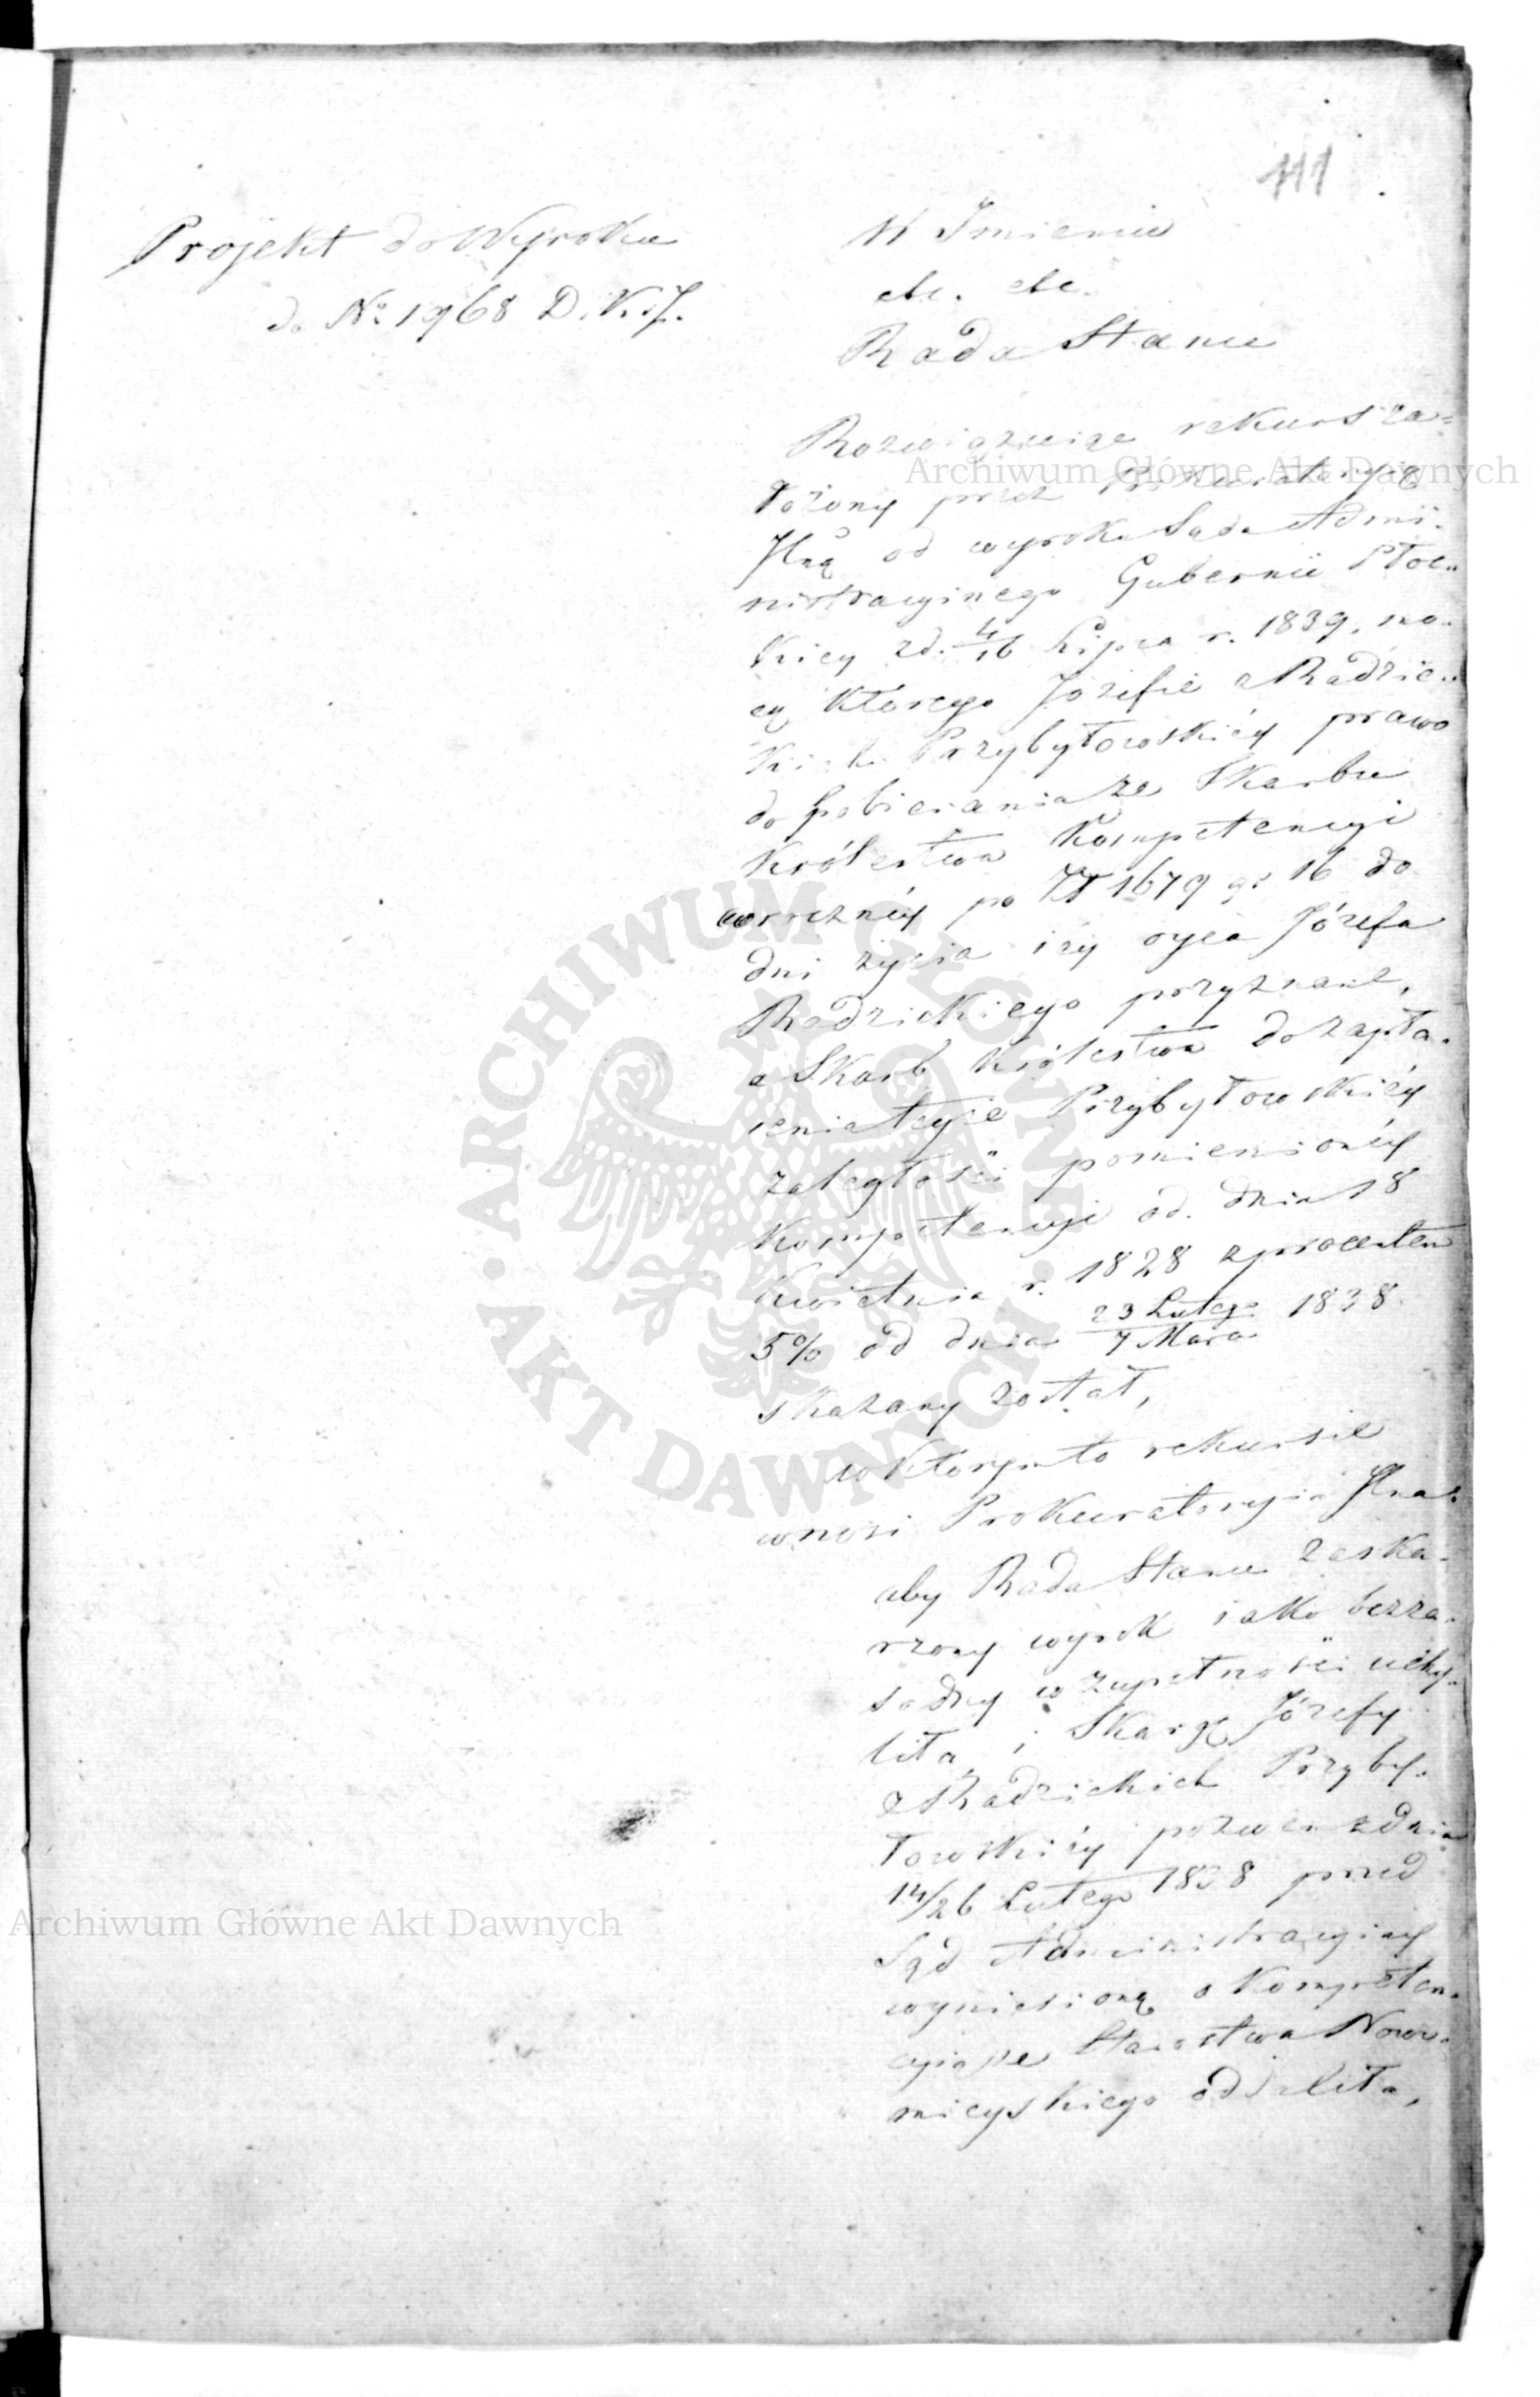 111
Projekt do Wyroku
do No 1968 D. K. J.
W Imieniu
etc. etc.
Rada Stanu
Rozwiązuiąc rekurs za=
łożony przez Prokuratoryię
Jlną od wyroku Sądu Admi-
nistracyinego Gubernii Płoc-
kiey z d. 4/16 Lipca r. 1839, mo-
cą którego Józefie z Radzic-
kich Przybyłowskiéy prawo
do pobierania ze Skarbu
Królestwa Kompetencyi
corocznéy po Zł 1679 gr 16 do
dni życia iéy oyca Józefa
Radzickiego przyznane,
a Skarb Królestwa do zapła-
cenia teyże Przybyłowskiéy
zaległości pomienionéy
Kompetencyi od dnia 18
Kwietnia r. 1828 z procentem
5% od dnia 23 Lutego/7 Marca 1838
skazany został,
w którym to rekursie
wnosi Prokuratorya Jlna:
aby Rada Stanu zaska-
rżony wyrok iako bezza-
sadny w zupełności uchy-
liła, i Skargę Józefy
z Radzickich Przyby-
łowskiéy pozwem z dnia
14/26 Lutego 1838 przed
Sąd Administracyiny
wyniesioną o Kompeten-
cyią ze Starostwa Nowo-
mieyskiego oddaliła,
Archiwum Główne Akt Dawnych
Archiwum Główne Akt Dawnych
ARCHIWUM GŁÓWNE
AKT DAWNYCH